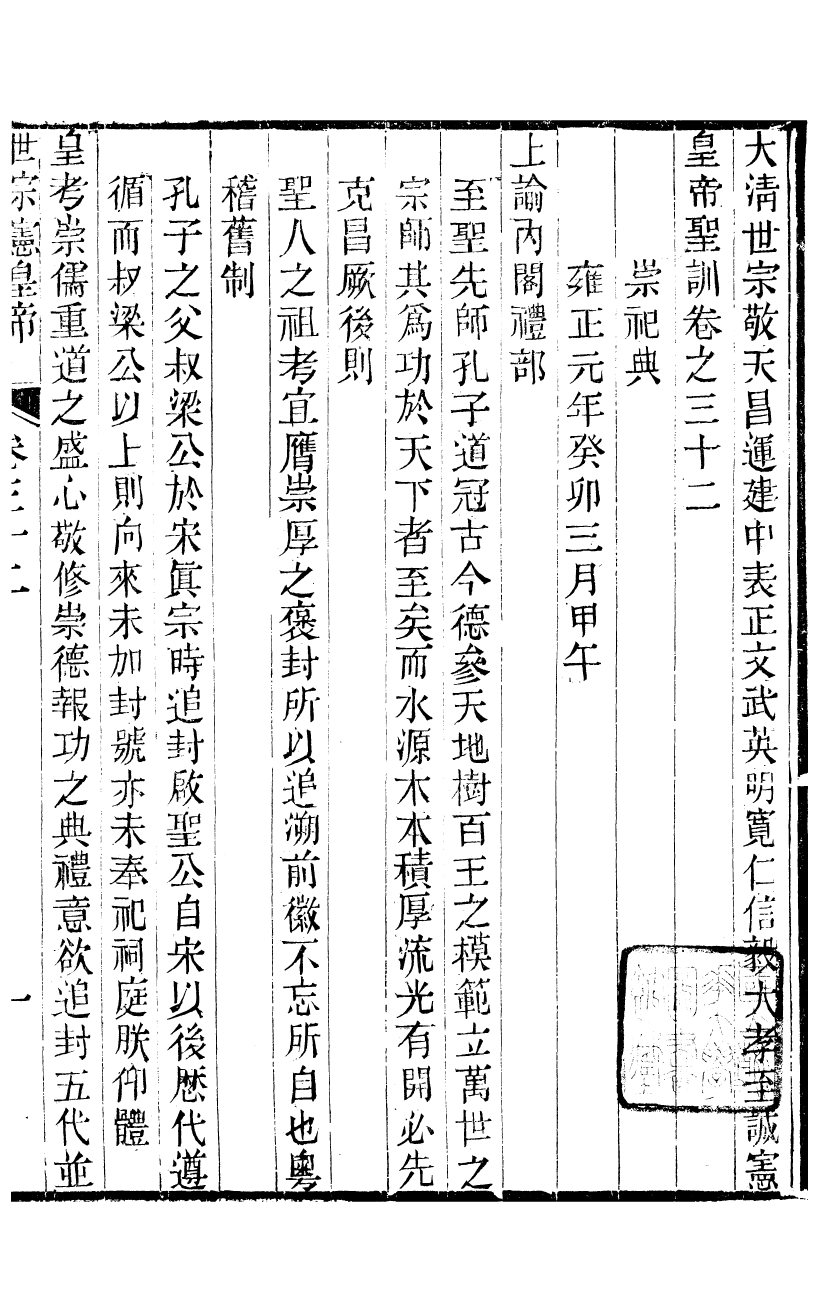 大淸世宗敬天昌運建中表正文武英明寬仁信毅大孝至誠憲
皇帝聖訓卷之三十二
崇祀典
雍正元年癸卯三月甲午
上諭內閣禮部
至聖先師孔子道冠古今德參天地樹百王之模範立萬世之
宗師其爲功於天下者至矣而水源木本積厚流光有開必先
克昌厥後則
聖人之祖考宜膺崇厚之褒封所以追溯前徽不忘所自也粵
稽舊制
孔子之父叔梁公於宋眞宗時追封啟聖公自宋以後歷代遵
循而叔梁公以上則向來未加封號亦未奉祀祠庭朕仰體
皇考崇儒重道之盛心敬修崇德報功之典禮意欲追封五代並
世宗憲皇帝 卷三十二 一